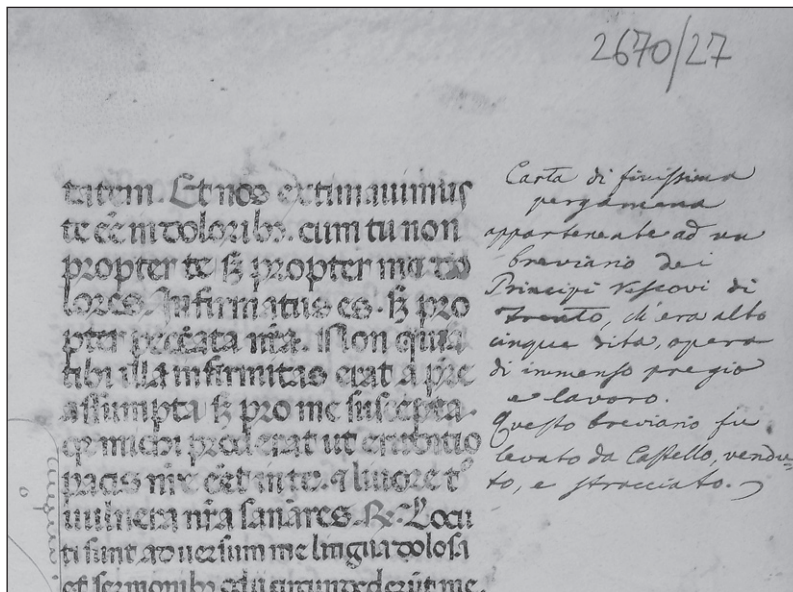 2670/27
tatem. Et nos extimauimus
te eē in doloribꝫ. cum tu non
propter te sꝫ propter me do
lores. Infirmatus es. sꝫ pro
pter peccata nr̄a. Non quia
tibi illa infirmitas erat a pr̄e
assumpta sꝫ pro me suscepta.
michi proderat ut eruditio
pacis nr̄e eēt in te. ⁊ liuore tᵒ
uulnera nr̄a sanares. ℞. Locu
ti sunt aduersum me lingua dolosa
et sermonibꝫ odii circundederūt me.
Carta di finissima
pergamena
appartenente ad un
breviario dei
Principi Vescovi di
Trento, ch'era alto
cinque dita, opera
di immenso pregio
e lavoro.
Questo breviario fu
levato da Castello, vendu-
to, e stracciato.